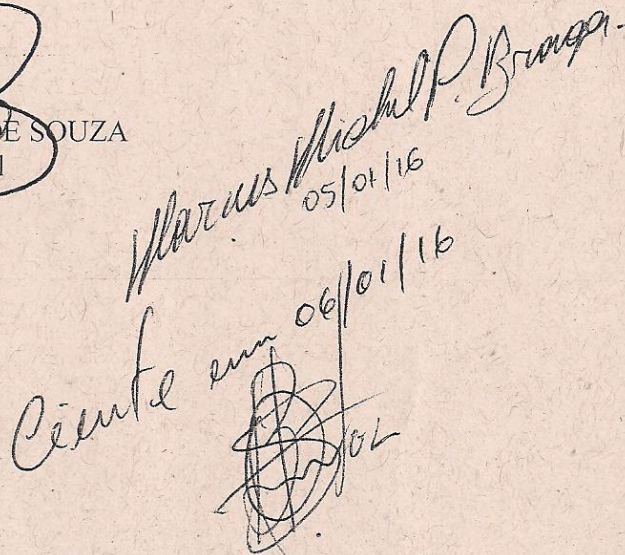 DE SOUZA
Marcus Michel P. Braga.
05/01/16
Ciente em 06/01/16